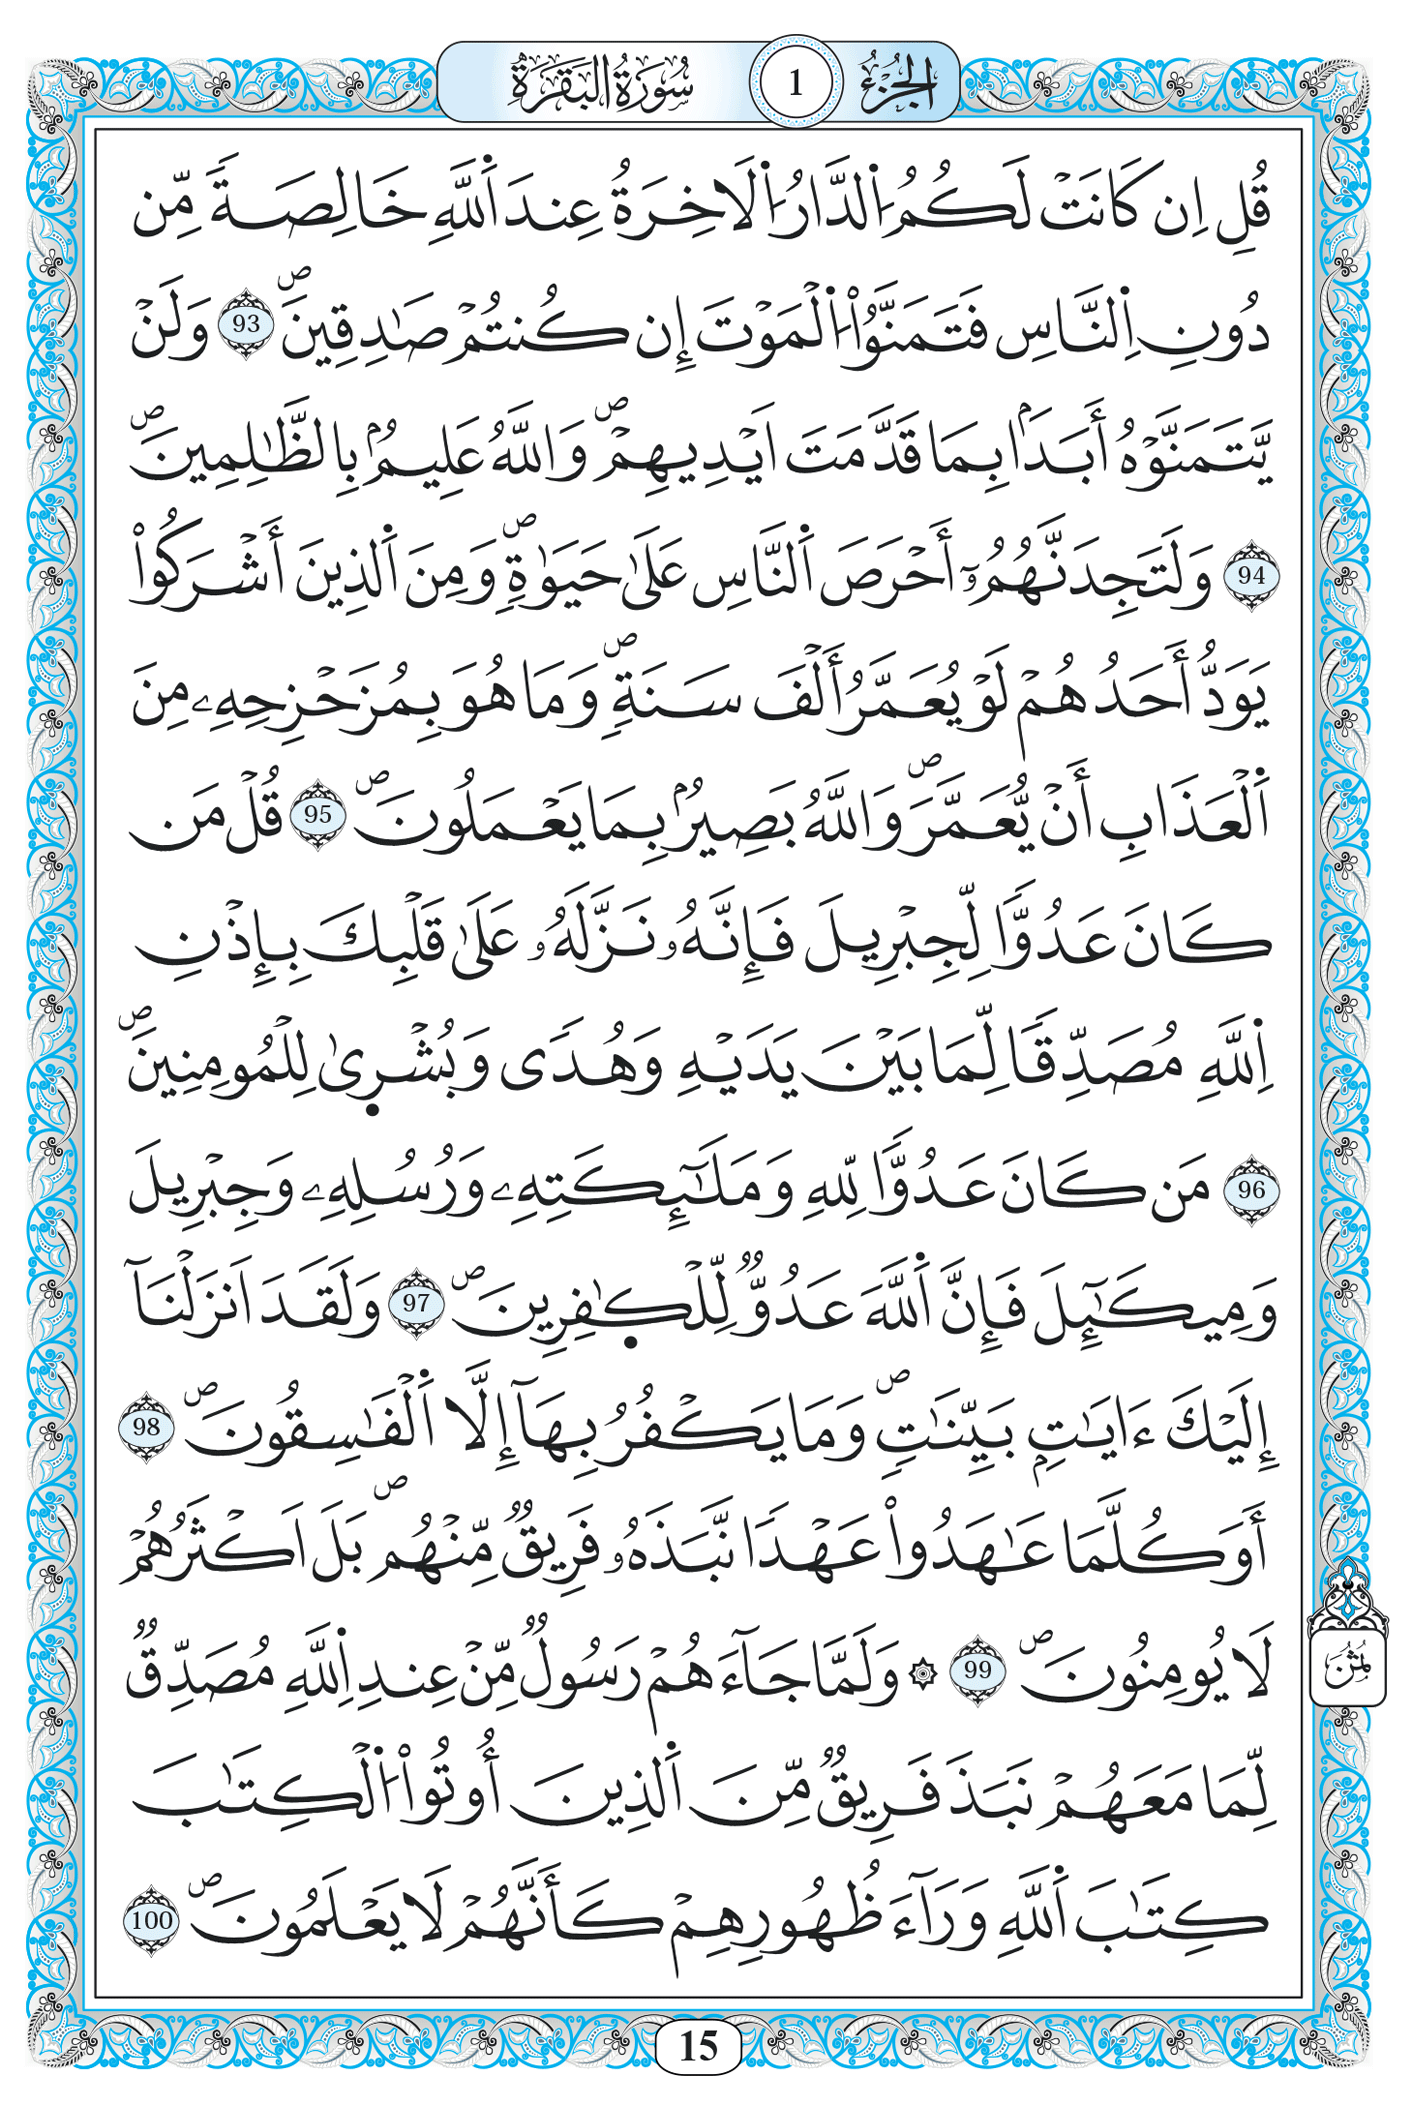 الجُزْءُ 1 سُورَةُ البَقَرَةِ
قُلِ اِن كَانَتْ لَكُمُ اُ۬لدَّارُ اُ۬لَاخِرَةُ عِندَ اَ۬للَّهِ خَالِصَةٗ مِّن
دُونِ اِ۬لنَّاسِ فَتَمَنَّوُاْ اُ۬لْمَوْتَ إِن كُنتُمْ صَٰدِقِينَۖ 93 وَلَنْ
يَّتَمَنَّوْهُ أَبَداَۢ بِمَا قَدَّمَتَ اَيْدِيهِمْۖ وَاللَّهُ عَلِيمُۢ بِالظَّٰلِمِينَۖ
94 وَلَتَجِدَنَّهُمُۥٓ أَحْرَصَ اَ۬لنَّاسِ عَلَىٰ حَيَوٰةٖۖ وَمِنَ اَ۬لذِينَ أَشْرَكُواْ
يَوَدُّ أَحَدُهُمْ لَوْ يُعَمَّرُ أَلْفَ سَنَةٖۖ وَمَا هُوَ بِمُزَحْزِحِهِۦ مِنَ
اَ۬لْعَذَابِ أَنْ يُّعَمَّرَۖ وَاللَّهُ بَصِيرُۢ بِمَا يَعْمَلُونَۖ 95 قُلْ مَن
كَانَ عَدُوّٗا لِّجِبْرِيلَ فَإِنَّهُۥ نَزَّلَهُۥ عَلَىٰ قَلْبِكَ بِإِذْنِ
اِ۬للَّهِ مُصَدِّقٗا لِّمَا بَيْنَ يَدَيْهِ وَهُدٗى وَبُشْر۪ىٰ لِلْمُومِنِينَۖ
96 مَن كَانَ عَدُوّٗا لِّلهِ وَمَلَٰٓئِكَتِهِۦ وَرُسُلِهِۦ وَجِبْرِيلَ
وَمِيكَٰٓئِلَ فَإِنَّ اَ۬للَّهَ عَدُوّٞ لِّلْكٰ۪فِرِينَۖ 97 وَلَقَدَ اَنزَلْنَآ
إِلَيْكَ ءَايَٰتِۢ بَيِّنَٰتٖۖ وَمَا يَكْفُرُ بِهَآ إِلَّا اَ۬لْفَٰسِقُونَۖ 98
أَوَكُلَّمَا عَٰهَدُواْ عَهْدٗا نَّبَذَهُۥ فَرِيقٞ مِّنْهُمۖ بَلَ اَكْثَرُهُمْ
لَا يُومِنُونَۖ 99 ۞ وَلَمَّا جَآءَهُمْ رَسُولٞ مِّنْ عِندِ اِ۬للَّهِ مُصَدِّقٞ
ثُمُن
لِّمَا مَعَهُمْ نَبَذَ فَرِيقٞ مِّنَ اَ۬لذِينَ أُوتُواْ اُ۬لْكِتَٰبَ
كِتَٰبَ اَ۬للَّهِ وَرَآءَ ظُهُورِهِمْ كَأَنَّهُمْ لَا يَعْلَمُونَۖ 100
15